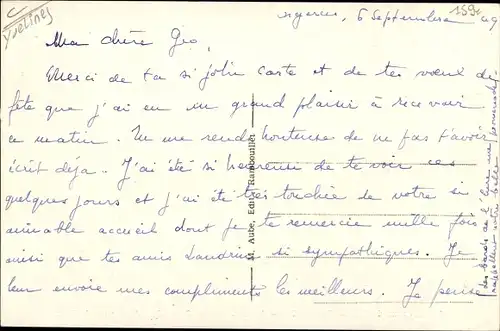 Yvelines
159
6 Septembre 49
Ma chère Geo,
Merci de ta si jolie carte et de tes vœux de
fête que j'ai eu un grand plaisir à recevoir
ce matin. Tu me rends honteuse de ne pas t'avoir
écrit déjà. J'ai été si heureuse de te voir ces
quelques jours et j'ai été très touchée de votre si
aimable accueil dont je te remercie mille fois
ainsi que tes amis si sympathiques. Je
leur envoie mes compliments les meilleurs. Je pense
M. Aube, Edit. Rambouillet